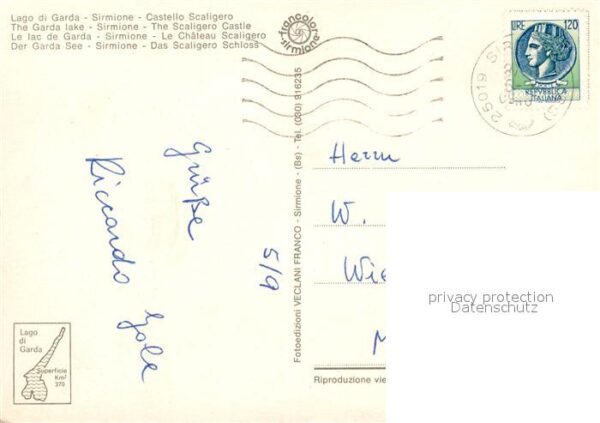 Lago di Garda - Sirmione - Castello Scaligero
The Garda lake - Sirmione - The Scaligero Castle
Le lac de Garda - Sirmione - Le Château Scaligero
Der Garda See - Sirmione - Das Scaligero Schloss
francolor
sirmione
LIRE 120
REPVBBLICA
ITALIANA
25019
Grüße
Riccardo
5/9
Fotoedizioni VECLANI FRANCO - Sirmione - (Bs) - Tel. (030) 916235
Herrn
W.
Wie
M
privacy protection
Datenschutz
Lago
di
Garda
Superficie
Km²
370
Riproduzione vie